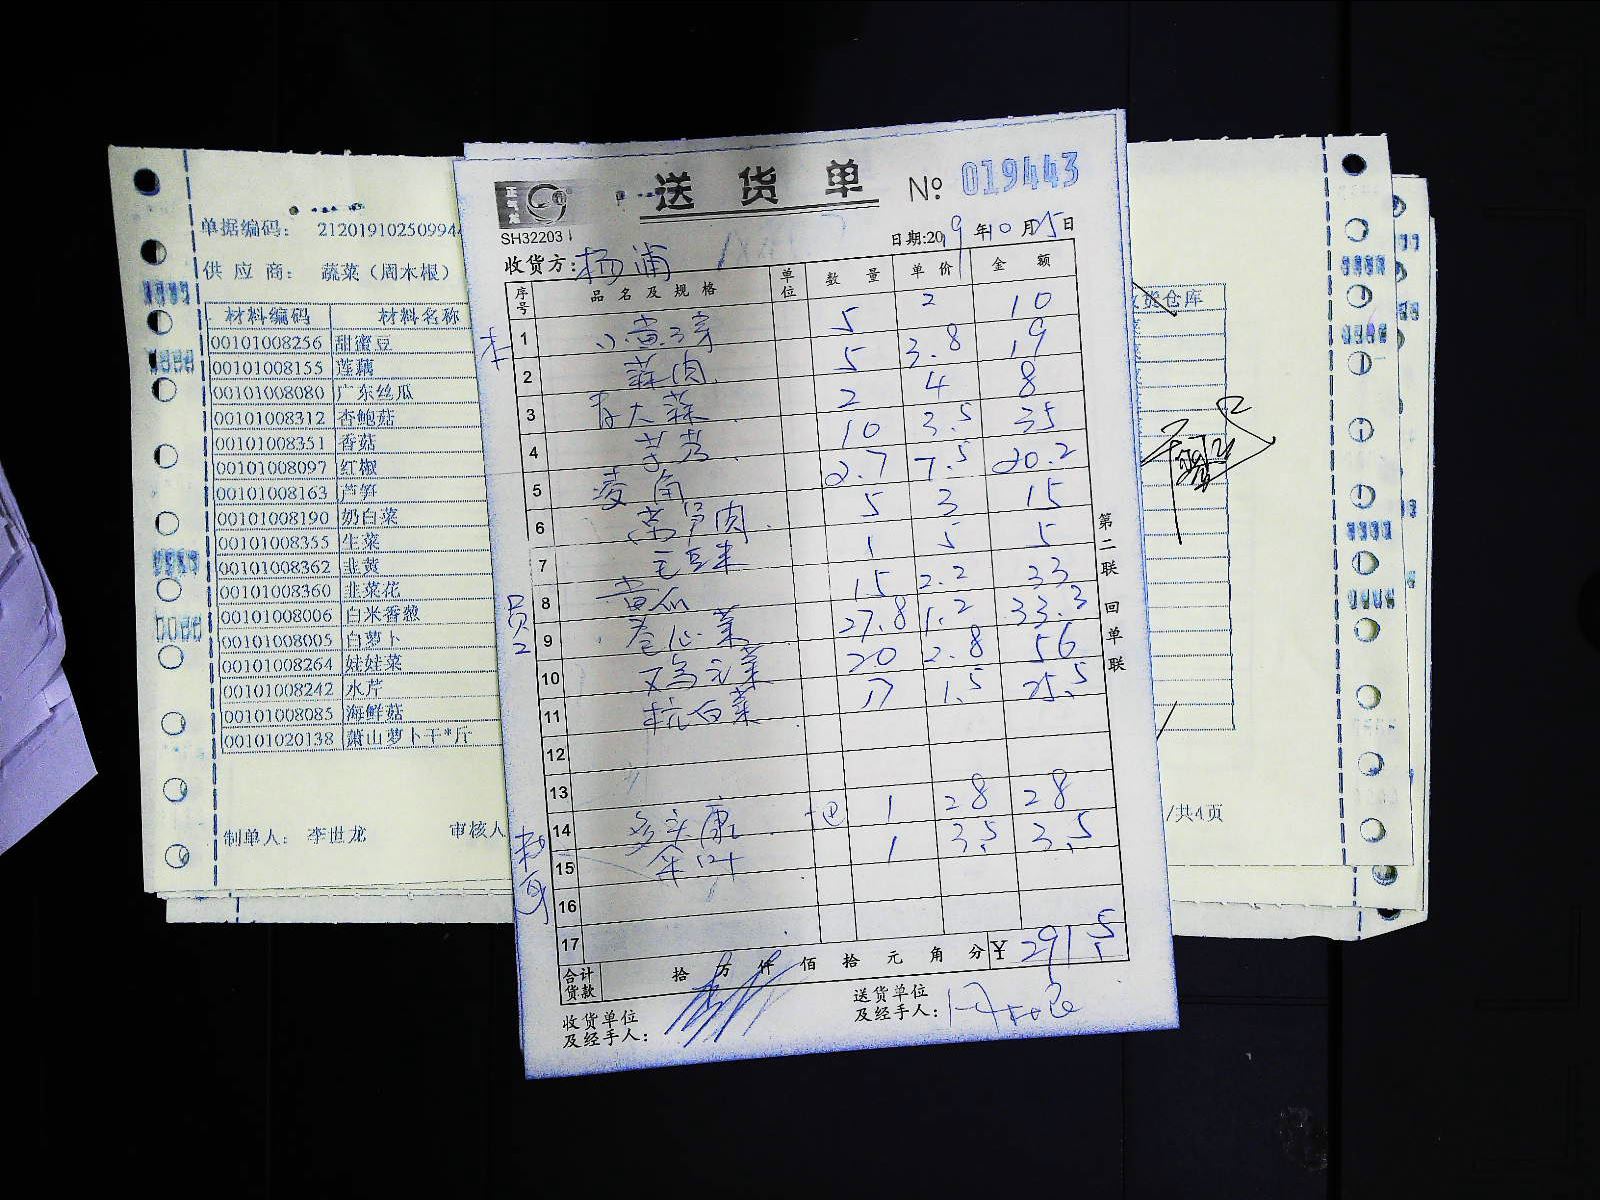 单据编码: 21201910250994
供 应 商: 蔬菜（周木根）
材料编码 材料名称
00101008256 甜蜜豆
00101008155 莲藕
00101008080 广东丝瓜
00101008312 杏鲍菇
00101008351 香菇
00101008097 红椒
00101008163 芦笋
00101008190 奶白菜
00101008355 生菜
00101008362 韭黄
00101008360 韭菜花
00101008006 白米香葱
00101008005 白萝卜
00101008264 娃娃菜
00101008242 水芹
00101008085 海鲜菇
00101020138 萧山萝卜干*斤
制单人: 李世龙
审核人
送 货 单 № 019443
正气龙
SH32203
日期:2019年10月25日
收货方: 杨浦
序号 品 名 及 规 格 单位 数 量 单 价 金 额
1 5 2 10
2 蒜肉 5 3.8 19
3 青大蒜 2 4 8
4 芋艿 10 3.5 35
5 凌角 2.7 7.5 20.2
6 莴笋肉 5 3 15
7 毛豆米 1 5 5
8 黄瓜 15 2.2 33
9 卷心菜 27.8 1.2 33.3
10 鸡毛菜 20 2.8 56
11 杭白菜 17 1.5 25.5
12
13
14 1 28 28
15 1 3.5 3.5
16
17
合计货款 拾 万 仟 佰 拾 元 角 分 ¥ 291.5
收货单位及经手人:
送货单位及经手人:
第二联 回单联
货仓库
/共4页